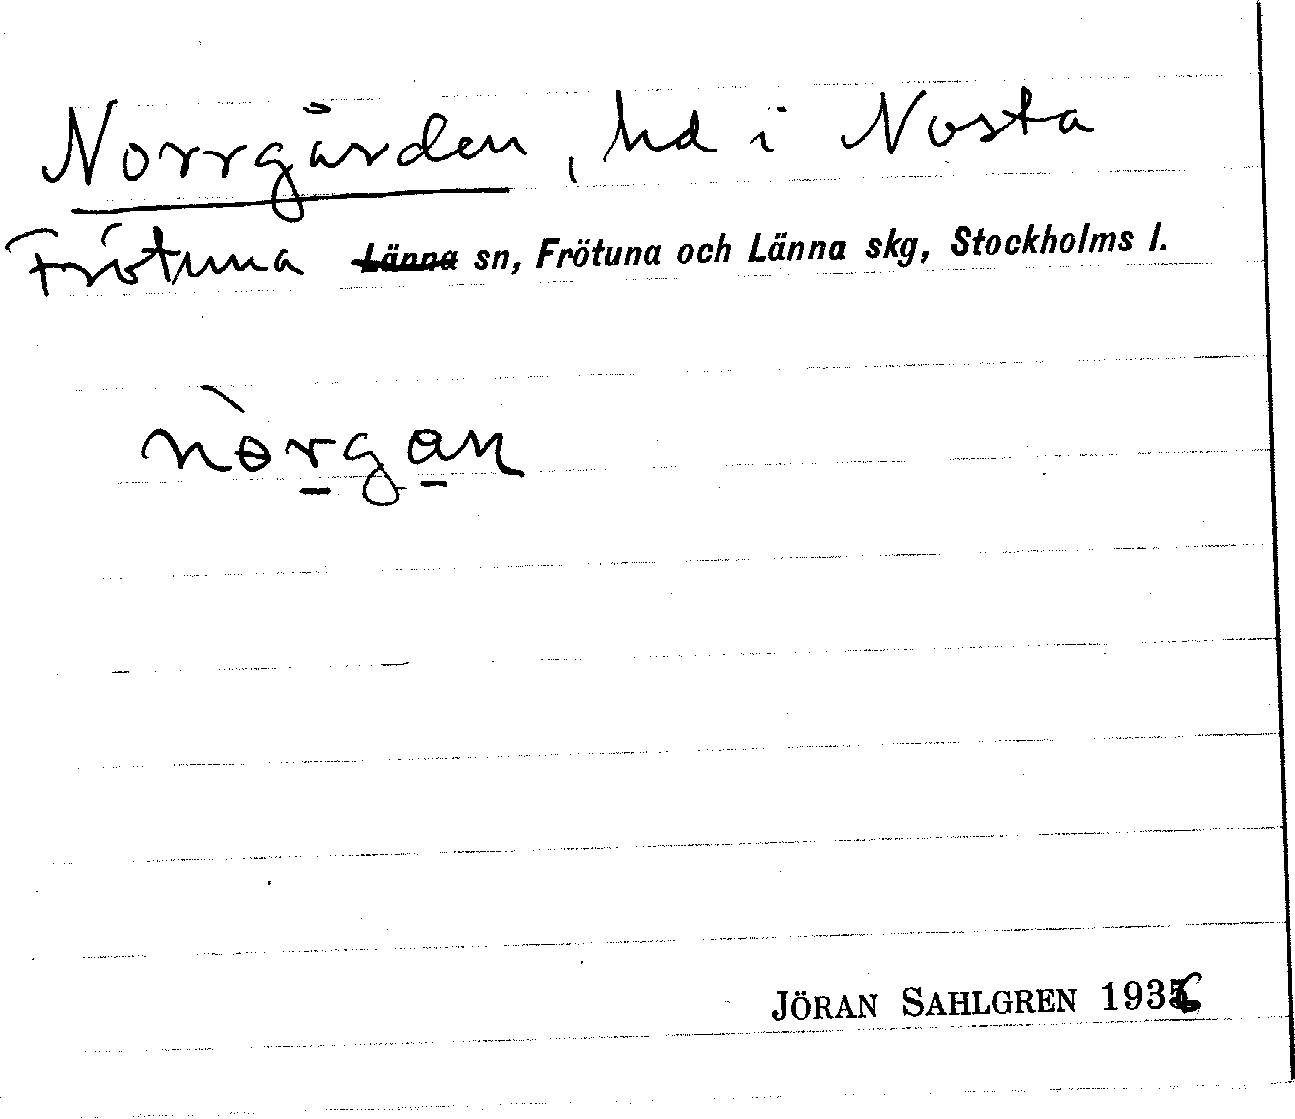 Norrgården, hd i Nosta
Frötuna Länna sn, Frötuna och Länna skg, Stockholms l.
nòrgan
JÖRAN SAHLGREN 1936